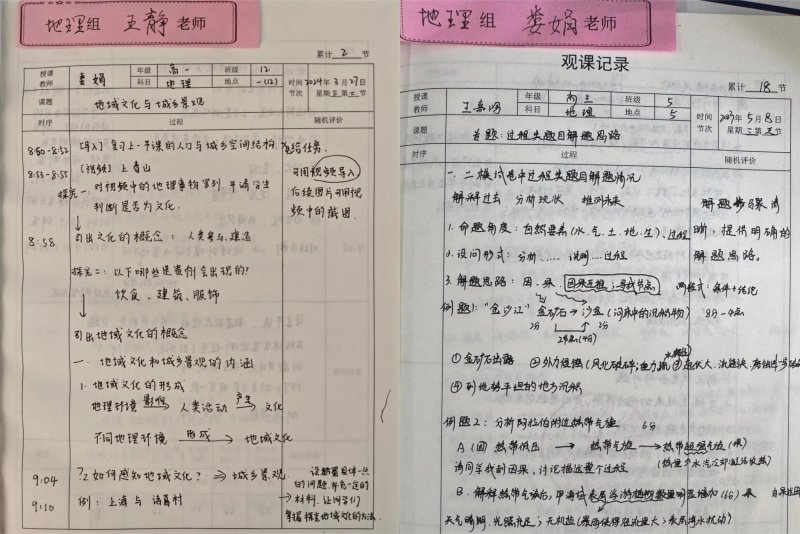 地理组 王静老师
累计 2 节
授课教师 娄娟 年级 高一 班级 12 时间 2024年3月27日
科目 地理 地点 一(12) 节次 星期三第二节
课题 地域文化与城乡景观
时序 过程 随机评价
8:50-8:52 [导入] 复习上一节课的人口与城乡空间结构,
8:53-8:55 [视频] 上春山 可用视频导入
探究一: 对视频中的地理事物罗列,并请学生 后续图片可用视
判断是否为文化. 频中的截图.
8:58 引出文化的概念: 人类参与、建造
探究二:以下哪些是贵州会出现的?
饮食、建筑、服饰
引出地域文化的概念
一、地域文化和城乡景观的内涵
1. 地域文化的形成
地理环境 影响 人类活动 产生 文化
不同地理环境 形成 地域文化
9:04 如何感知地域文化? 城乡景观
设置具体一点
的问题
9:10 例:上海与 材料,让同学们
掌握探究地域文化的方法.
地理组 娄娟老师
观课记录
累计 18 节
授课教师 年级 高三 班级 5 时间 2023年5月8日
科目 地理 地点 5 节次 星期
课题 专题:过程类题目解题思路
时序 过程 随机评价
一、二模试卷中过程类题目解题情况
解释过去 分析现状 推测未来 解题步骤清
1. 命题角度:自然要素(水、气、土、地、生)、过程 晰,提供明确的
2. 设问形式:分析......说明....过程 解题思路。
3. 解题思路:因、果、因果互推;寻找节点 两模式:条件+结论
例题1:"金沙江" 金矿石→沙金(河床中的沉积物) 8分-4点
2分 2分
2个点(4分)
①金矿石出露 ②外力侵蚀
④到地势平坦的地方沉积
例题2:分析阿拉伯附近热带气旋 6分
A (因) 热带低压 → 热带气旋 → 热带超强气旋(果)
请同学找到因果,讨论描述整个过程
B. 解释热带气旋后,甲海域表层浮游植物数量明显增加(6分) 果
天气晴朗,光照充足;无机盐